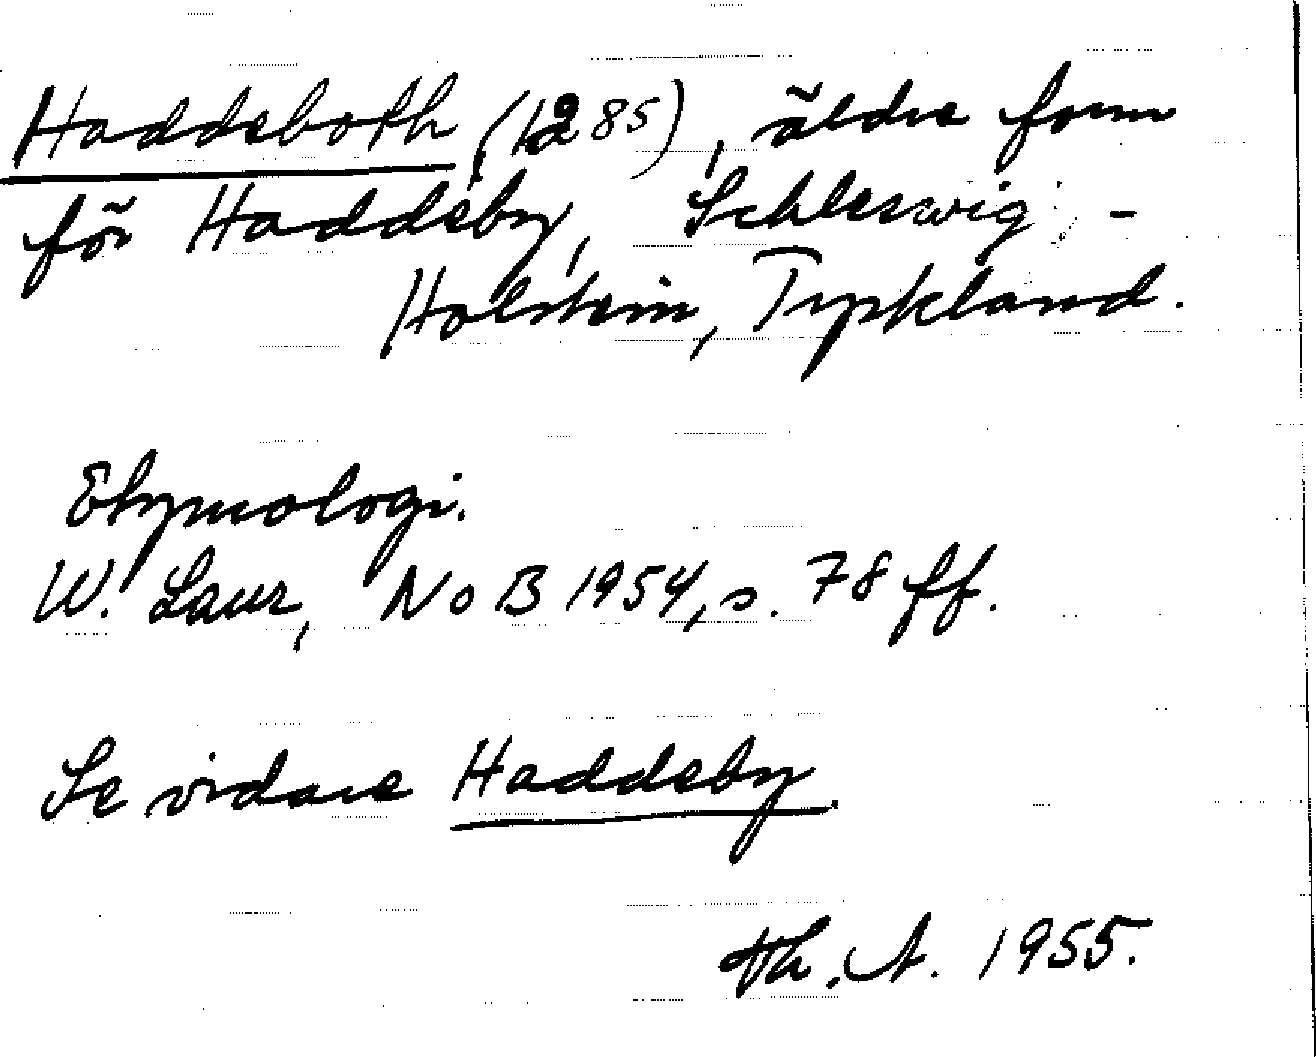 Haddeboth (1285), äldre form
för Haddeby, Schleswig -
Holstein, Tyskland.
Etymologi.
W. Laur, NoB 1954, s. 78 ff.
Se vidare Haddeby.
Th. A. 1955.